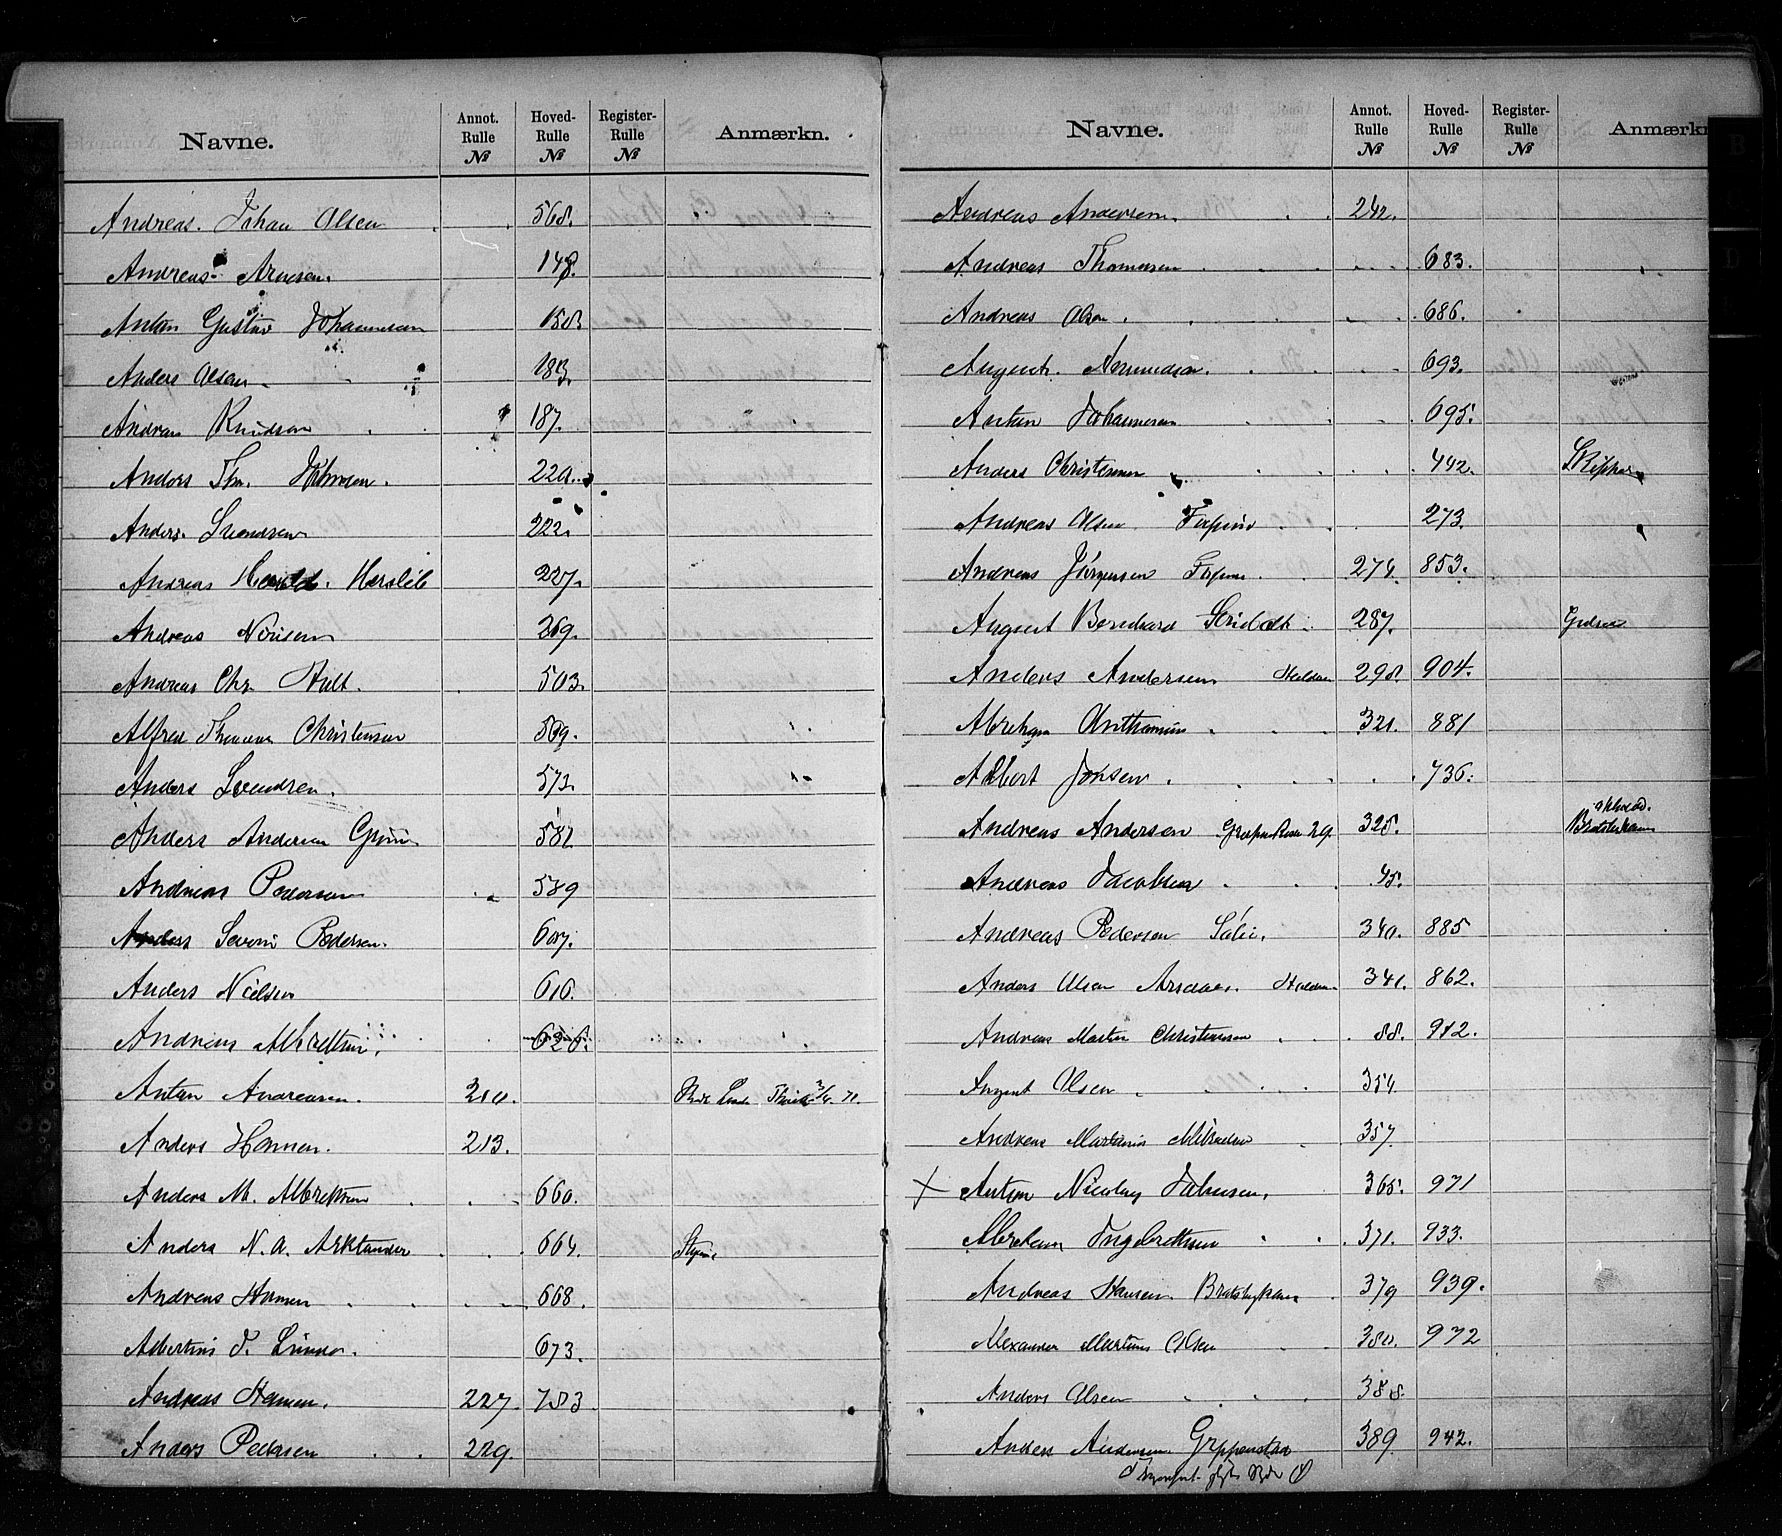 Navne. Annot. Rulle № Hoved- Rulle № Register- Rulle № Anmærkn.
Andreas Johan Olsen 568.
Andreas Arnesen 148.
Anton Gustav Johannesen 150
Anders Olsen 183.
Andreas Knudsen 187.
Anders Thr. Johnsen. 220.
Anders Svendsen 222.
Andreas Hersleb 227.
Andreas Nilsen 269.
Andreas Chr. Hult. 503.
Alfred Thomas Christensen 569.
Anders Svendsen. 573.
Anders Andersen 582
Andreas Pedersen 589
Anders Severin Pedersen. 607.
Anders Nielsen 616.
Andreas Albrettsen. 626.
Anton Andreasen. 210.
Anders Hansen. 213.
Anders M. Albrektsen 660.
Anders N. A. Arktander 664.
Andreas Hansen 668.
Albertius J. 673.
Andreas Hansen. 227. 783
Anders Pedersen 229.
Navne. Annot. Rulle № Hoved- Rulle № Register- Rulle № Anmærkn
Andreas Andersen. 242.
Andreas Thomesen 683.
Andreas Olsen. 686.
August Asmundsen. 693.
Anton Johannesen 695.
Anders Christensen 442. Skipper
Andreas Olsen 273.
Andreas Jörgensen 274. 853.
August Bernhard 287.
Anders Andersen Halden 298. 904.
Abraham 321. 881
Albert Jonsen. 736.
Andreas Andersen 29 325.
Andreas Jacobsen 45.
Andreas Pedersen 340. 885
Anders Olsen Halden 341. 862.
Andreas Martin Christensen 88. 912.
August Olsen 354
Andreas Martinius Mikkelsen 357.
× Anton Nicolay Johnsen. 365. 971
Abraham Ingebrettsen 371. 933.
Andreas Hansen. 379 939.
Alexander Martinus Olsen 380. 972
Anders Olsen 388.
Anders Andersen 389 942.